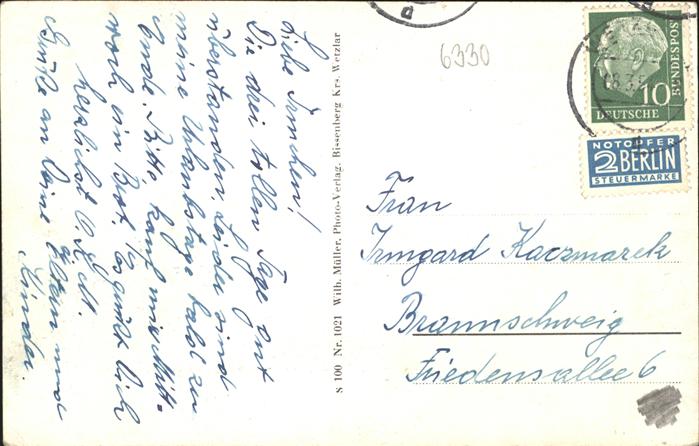 Liebe Irmchen!
Die drei tollen Tage gut
überstanden. Leider sind
meine Urlaubstage bald zu
Ende. Bitte, kauf mir Mitt-
woch ein Brot. Es grüßt Dich
herzlichst
Grüße an Deine Eltern und
Kinder.
S 100 Nr. 1021 Wilh. Müller, Photo-Verlag, Bissenberg Krs. Wetzlar
6330
10
DEUTSCHE
BUNDESPOST
NOTOPFER
2 BERLIN
STEUERMARKE
Frau
Irmgard Kaczmarek
Braunschweig
Friedensallee 6